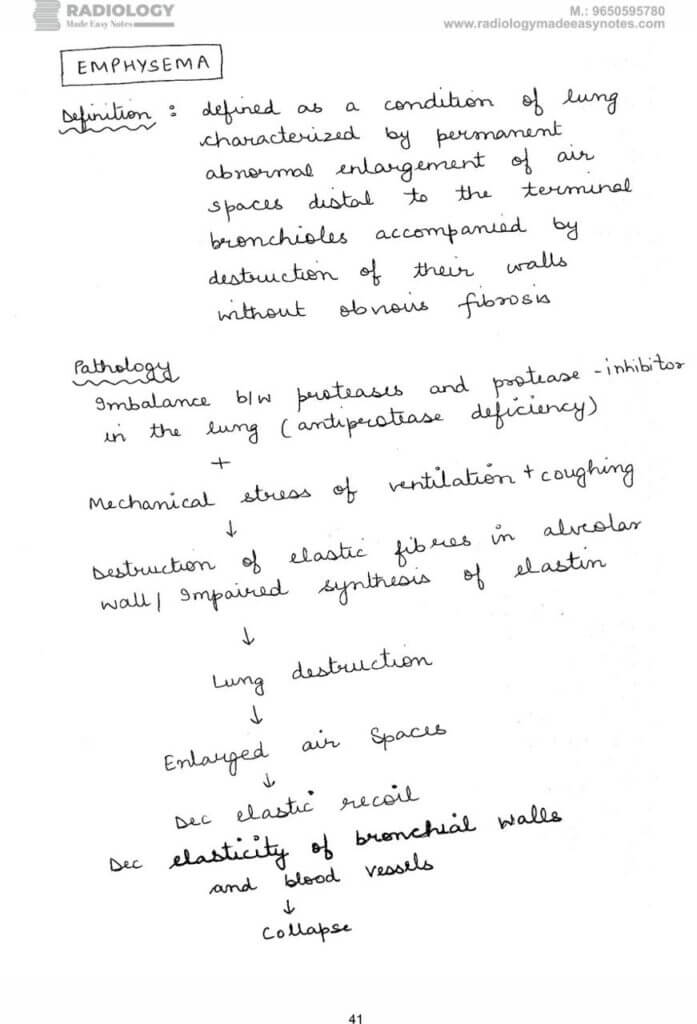 RADIOLOGY
Made Easy Notes
M.: 9650595780
www.radiologymadeeasynotes.com
EMPHYSEMA
Definition : defined as a condition of lung
characterized by permanent
abnormal enlargement of air
spaces distal to the terminal
bronchioles accompanied by
destruction of their walls
without obvious fibrosis
Pathology
Imbalance b/w proteases and protease-inhibitor
in the lung (antiprotease deficiency)
+
Mechanical stress of ventilation + coughing
↓
Destruction of elastic fibres in alveolar
wall/ Impaired synthesis of elastin
↓
Lung destruction
↓
Enlarged air Spaces
↓
Dec elastic recoil
Dec elasticity of bronchial walls
and blood vessels
↓
Collapse
41